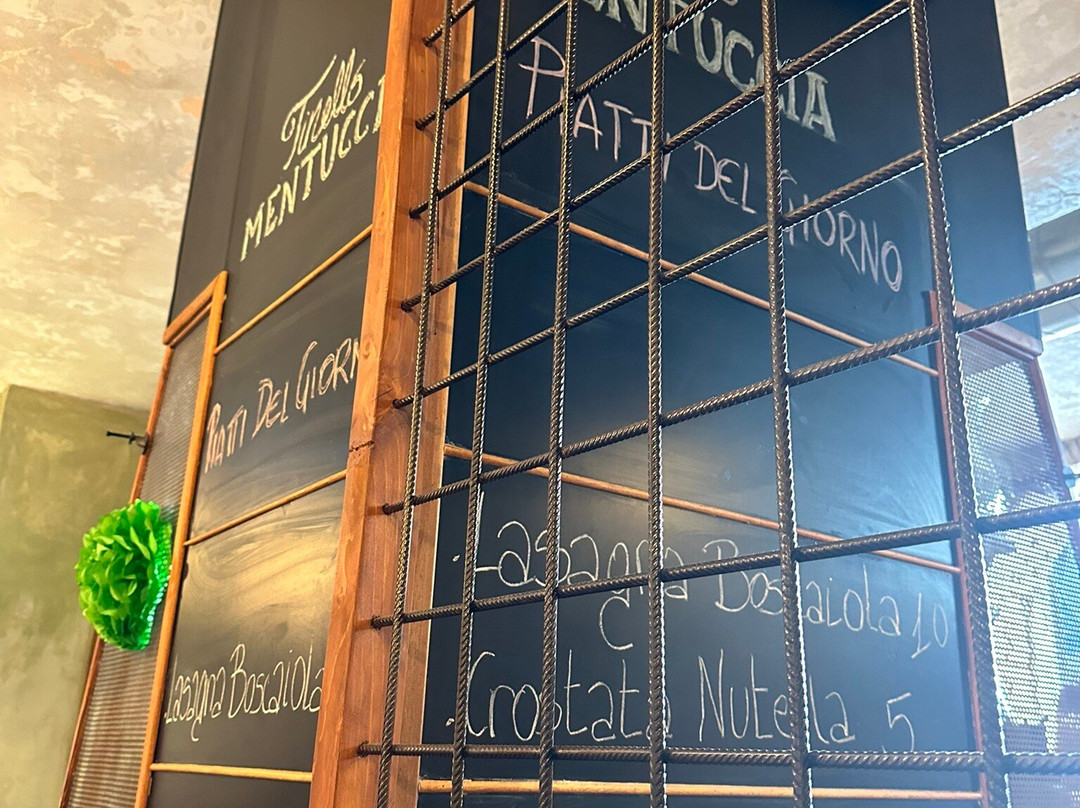 Tirello
MENTUCCI
PIATTI DEL GIORN
Lasagna Boscaiola
ENTUCCIA
PIATTI DEL GIORNO
· Lasagna Boscaiola 10
· Crostata Nutella 5